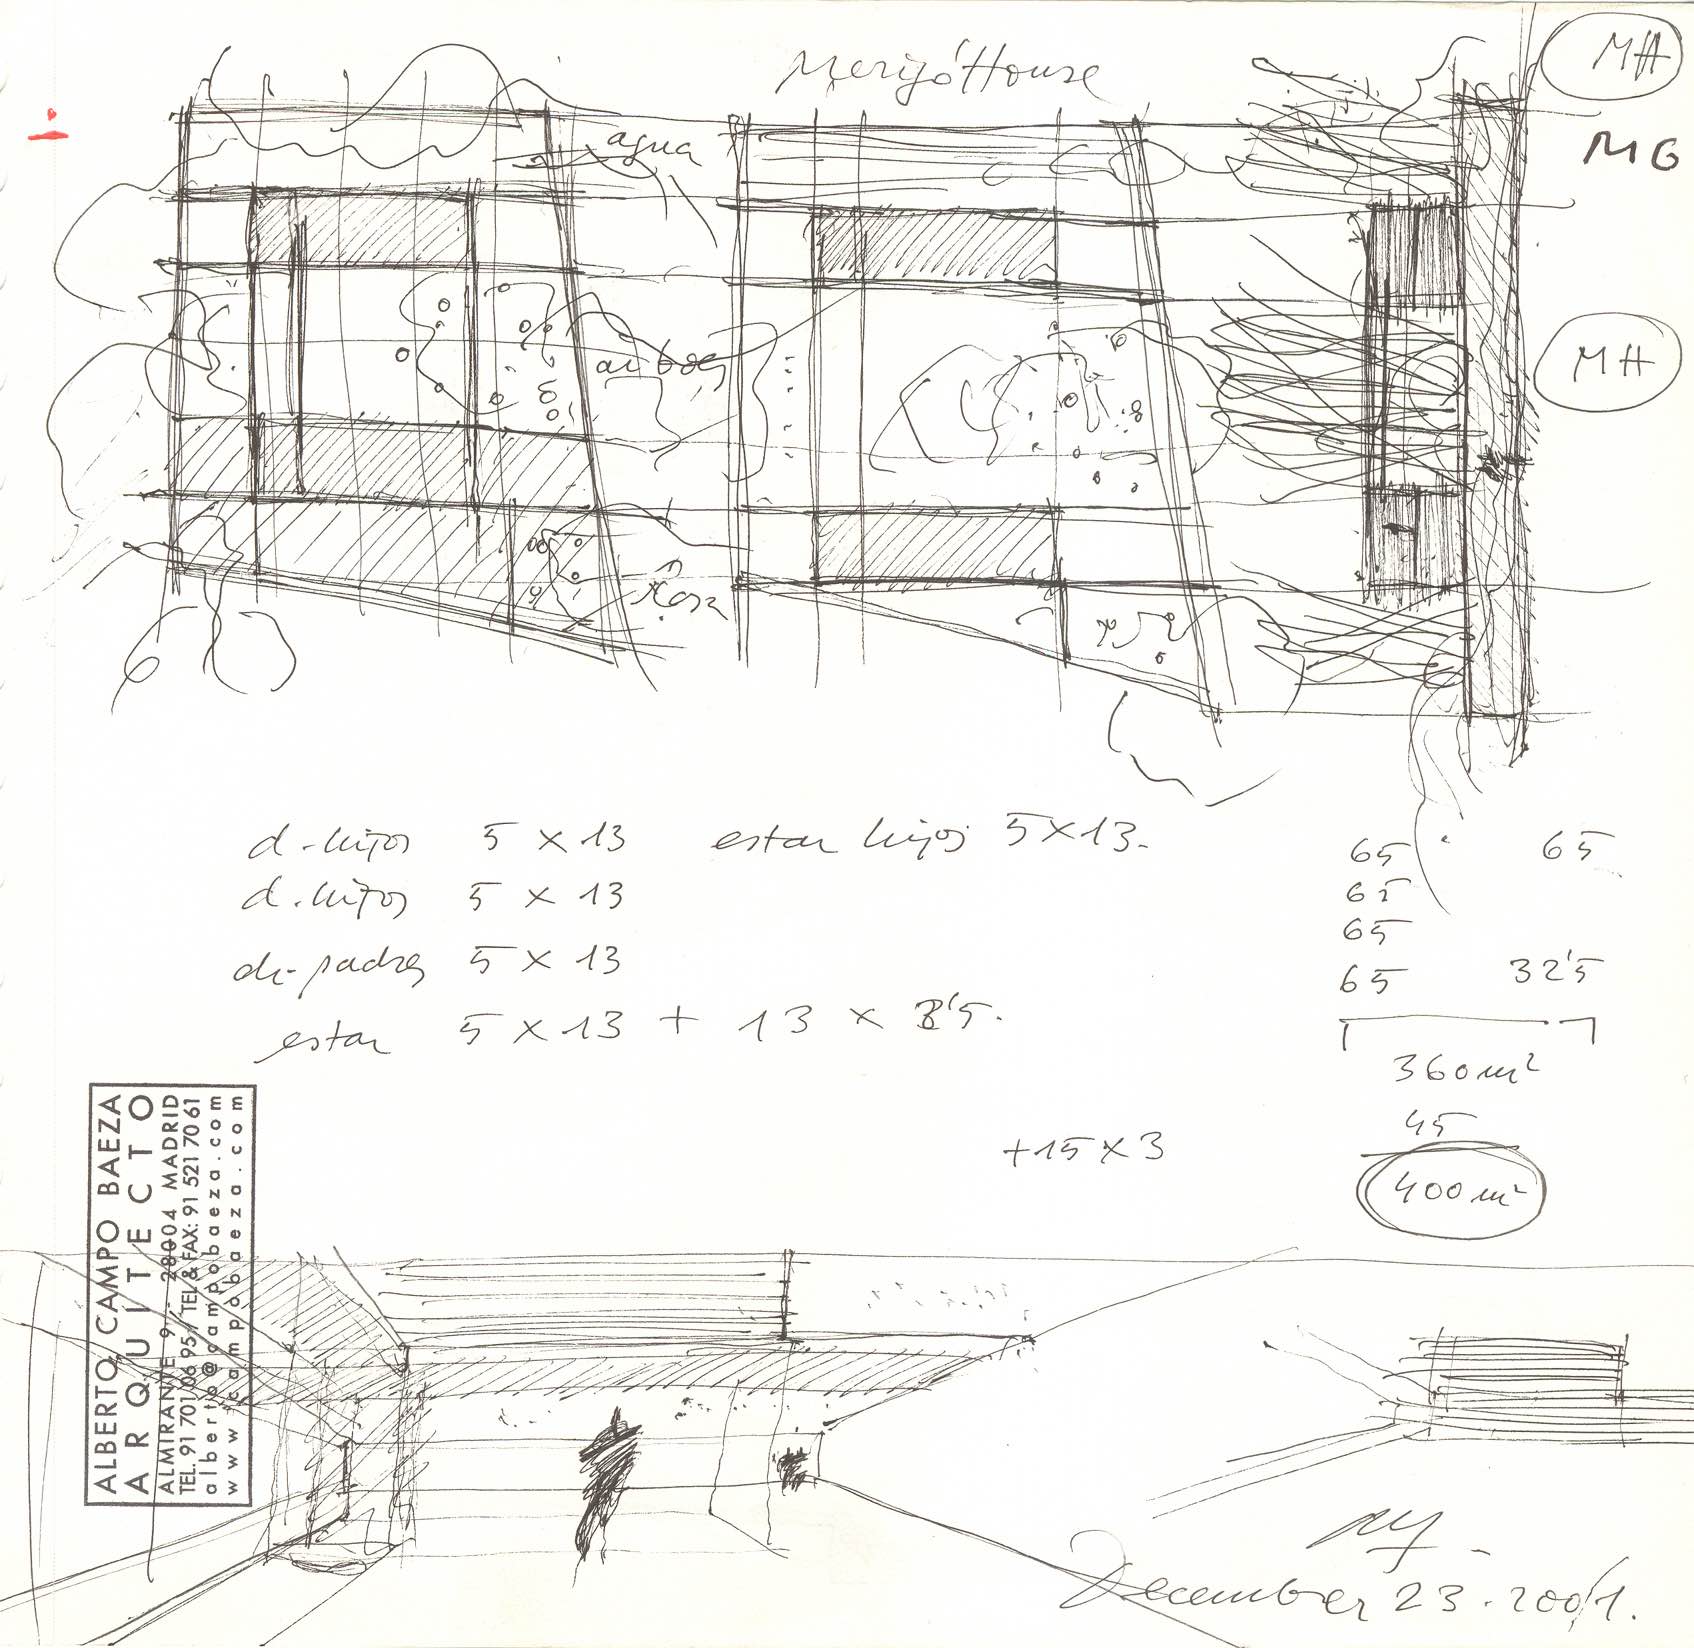 MH
Merijó House
MG
agua
MH
d-hijos 5 x 13 estar hijos 5x13.
65 65
d.hijos 5 x 13
65
65
d-padres 5 x 13
65 32'5
estar 5 x 13 + 13 x
360 m²
+15 x 3
45
400 m²
ALBERTO CAMPO BAEZA
ARQUITECTO
ALMIRANTE 9 - 28004 MADRID
TEL. 91 701 06 95 / TEL & FAX: 91 521 70 61
alberto@campobaeza.com
www.campobaeza.com
December 23. 2001.